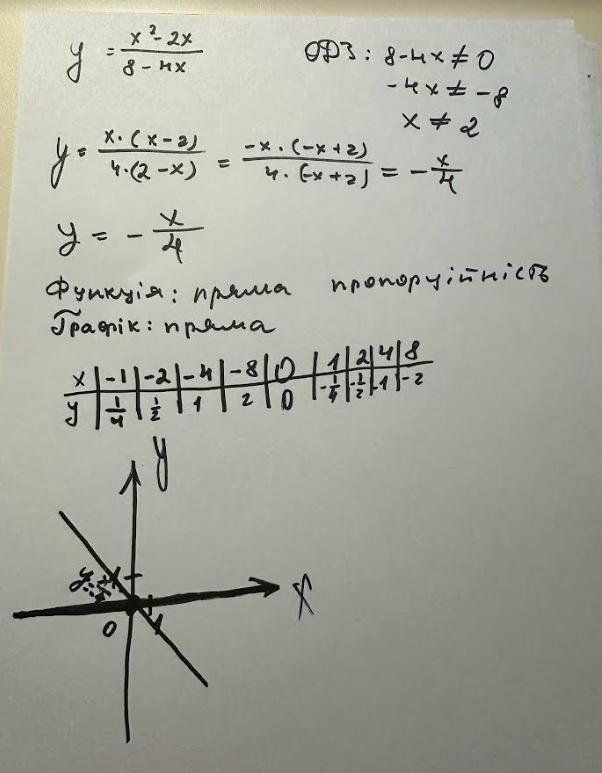 y = (x² - 2x)/(8 - 4x)
ОДЗ: 8-4x ≠ 0
-4x ≠ -8
x ≠ 2
y = (x·(x-2))/(4·(2-x)) = (-x·(-x+2))/(4·(-x+2)) = -x/4
y = -x/4
Функція: пряма пропорційність
Графік: пряма
x | -1 | -2 | -4 | -8 | 0 | 1 | 2 | 4 | 8
y | 1/4 | 1/2 | 1 | 2 | 0 | -1/4 | -1/2 | -1 | -2
y
x
0